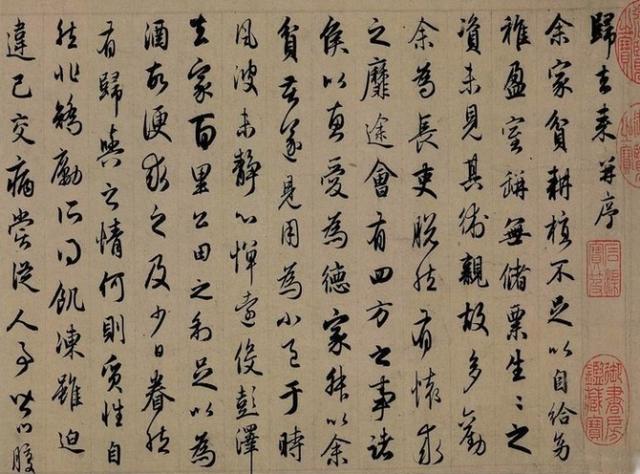 歸去來并序
余家貧耕植不足以自給幼
稚盈室缾無儲粟生〻之
資未見其術親故多勸
余為長吏脫然有懷求
之靡途會有四方之事諸
侯以惠愛為德家叔以余
貧苦遂見用為小邑于時
風波未靜心憚遠役彭澤
去家百里公田之利足以為
酒故便求之及少日眷然
有歸與之情何則質性自
然非矯勵所得飢凍雖迫
違己交病嘗從人事皆口腹
石渠寶笈
御書房鑑藏寶